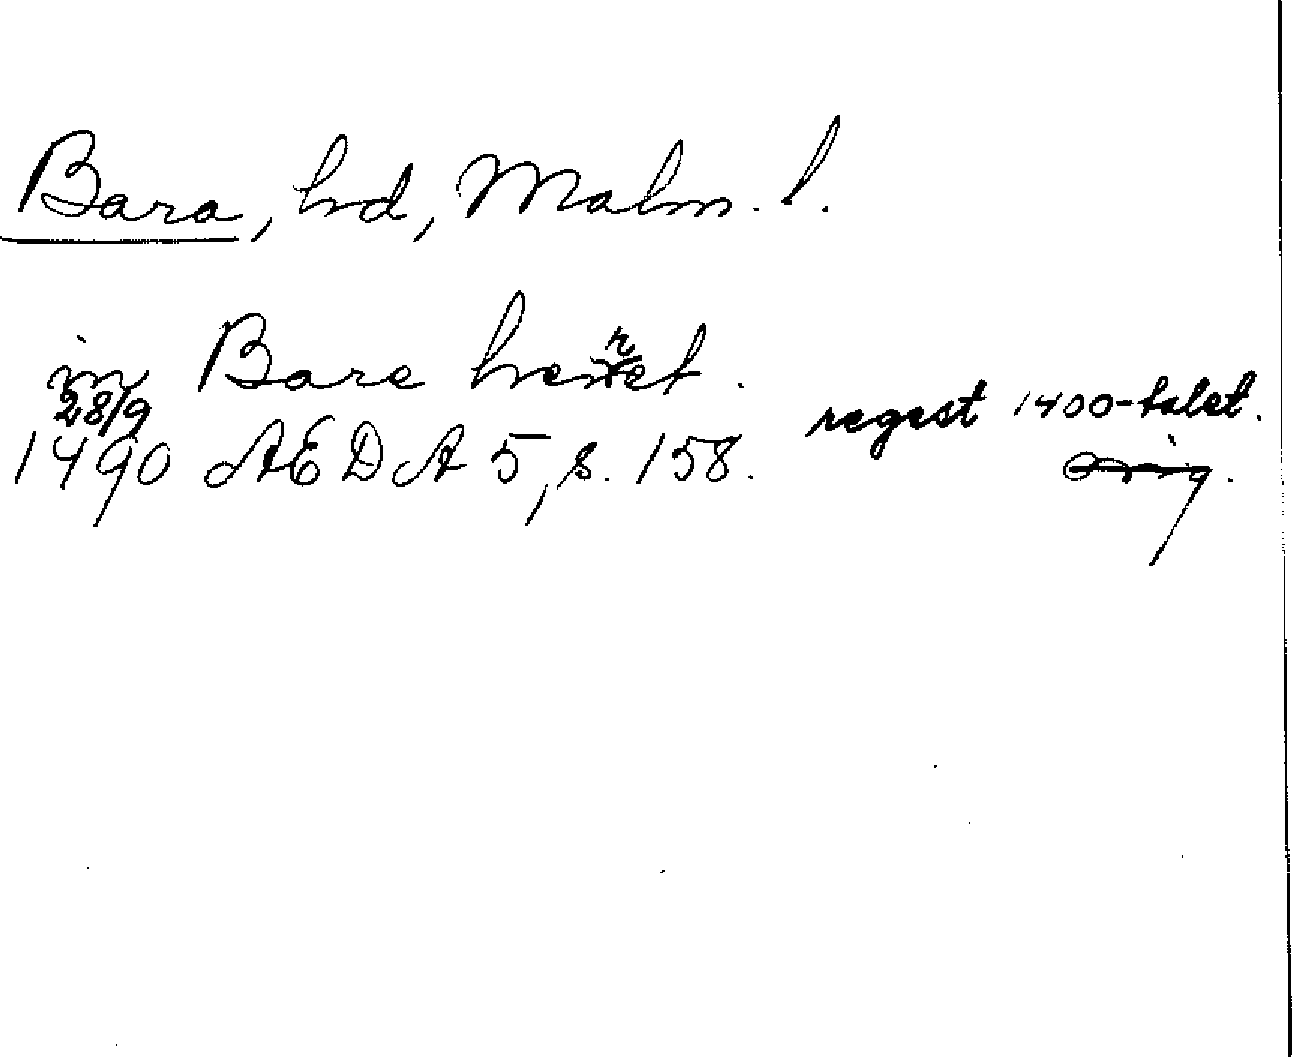 Bara, hd, Malm. l.
in Bare heret.
28/9
regest 1400-talet.
1490 AEDA 5, s. 158.
orig.